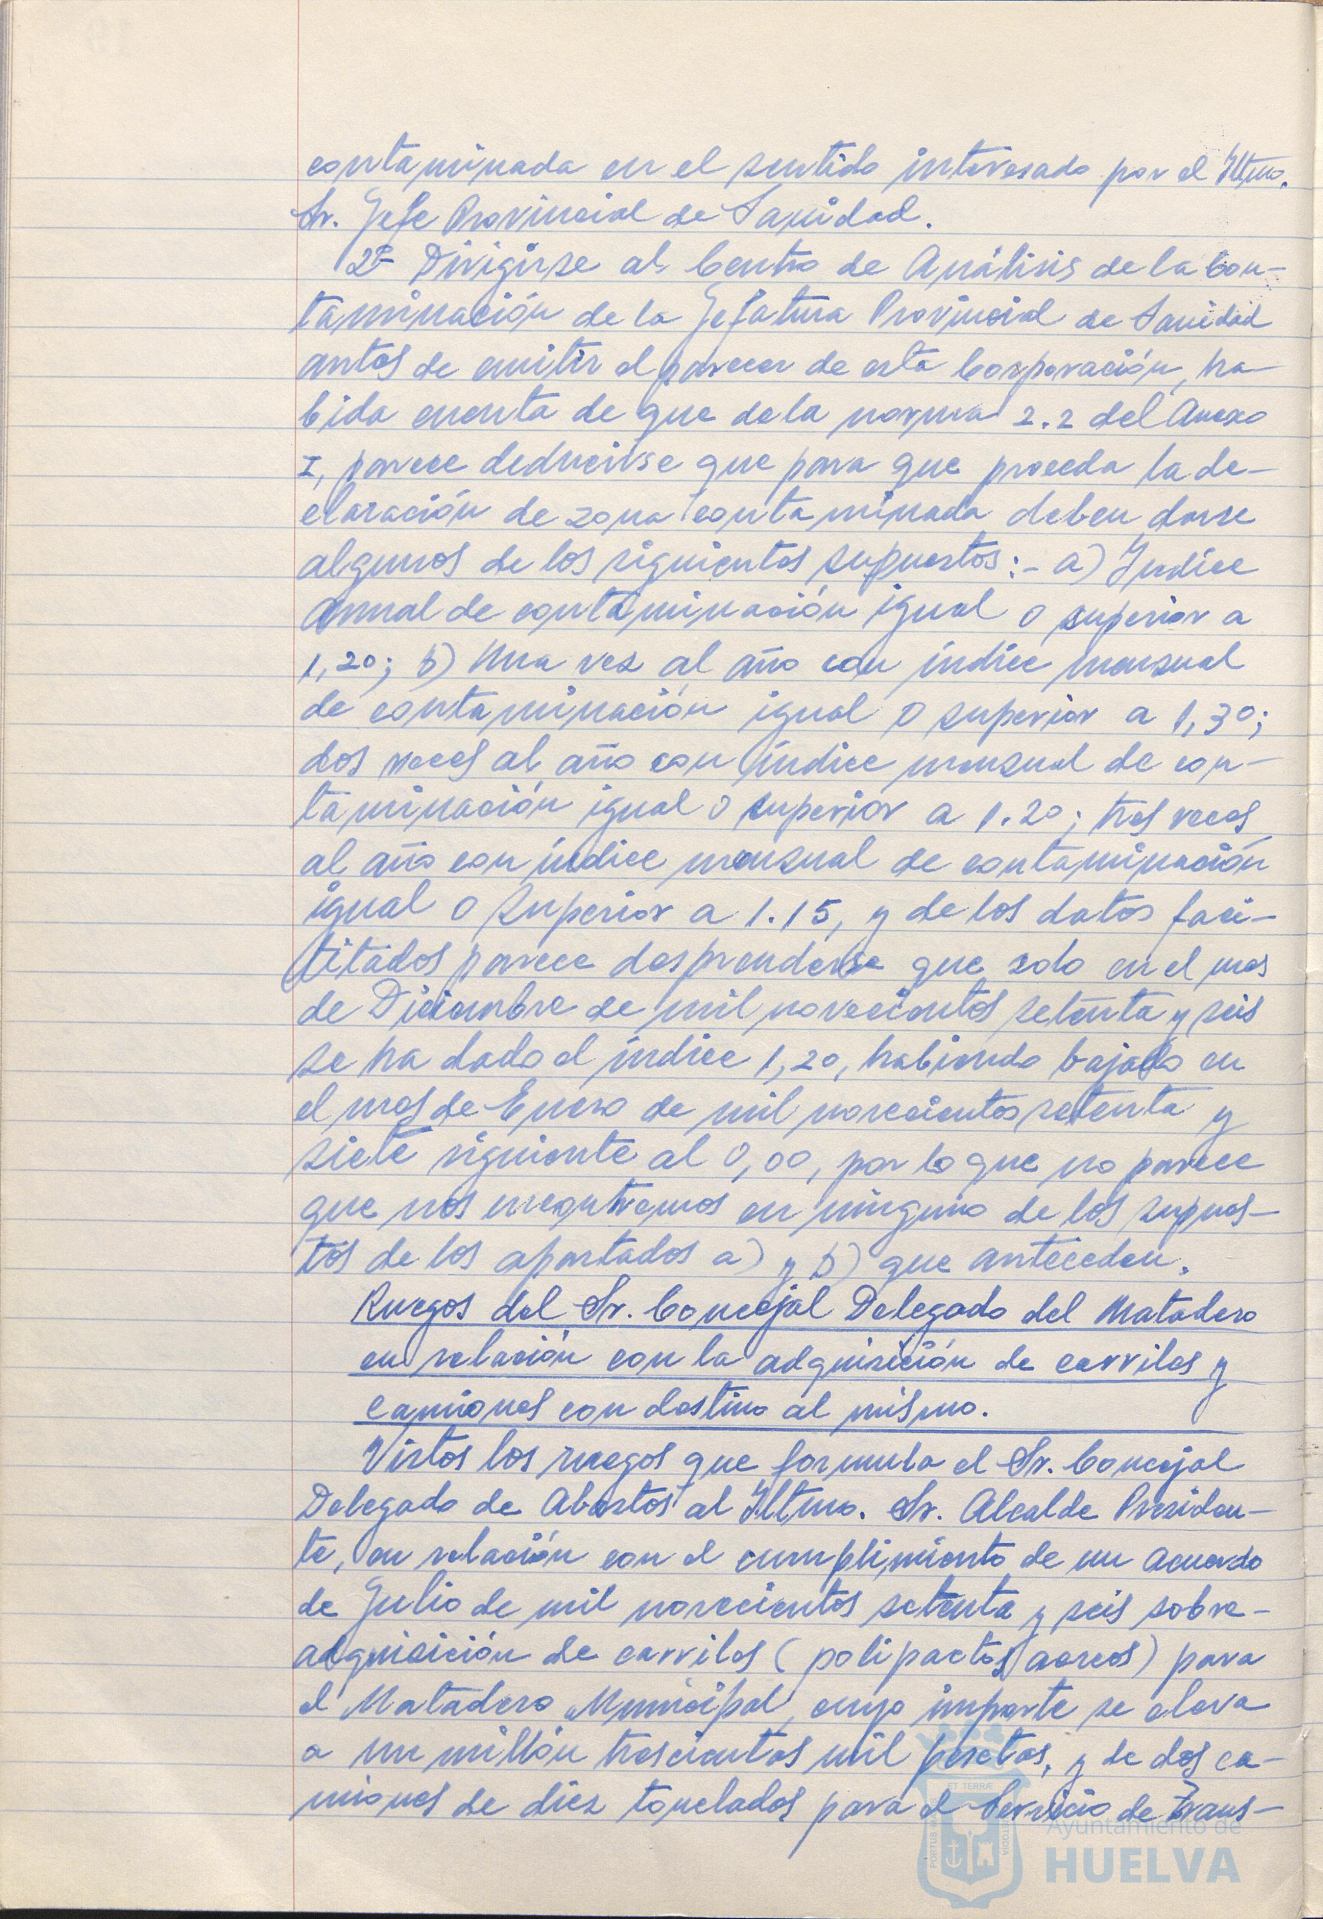 contaminada en el sentido interesado por el Iltmo.
Sr. Jefe Provincial de Sanidad.
2º Dirigirse al Centro de Análisis de la Con-
taminación de la Jefatura Provincial de Sanidad
antes de emitir el parecer de esta Corporación, ha-
bida cuenta de que de la norma 2.2 del Anexo
I, parece deducirse que para que proceda la de-
claración de zona contaminada deben darse
algunos de los siguientes supuestos:- a) Indice
anual de contaminación igual o superior a
1,20; b) Una vez al año con índice mensual
de contaminación igual o superior a 1,30;
dos veces al año con índice mensual de con-
taminación igual o superior a 1.20; tres veces
al año con índice mensual de contaminación
igual o superior a 1.15, y de los datos faci-
litados parece desprenderse que solo en el mes
de Diciembre de mil novecientos setenta y seis
se ha dado el índice 1,20, habiendo bajado en
el mes de Enero de mil novecientos setenta y
siete siguiente al 0,00, por lo que no parece
que nos encontremos en ninguno de los supues-
tos de los apartados a) y b) que anteceden.
Ruegos del Sr. Concejal Delegado del Matadero
en relación con la adquisición de carriles y
camiones con destino al mismo.
Vistos los ruegos que formula el Sr. Concejal
Delegado de Abastos al Iltmo. Sr. Alcalde Presiden-
te, en relación con el cumplimiento de un acuerdo
de Julio de mil novecientos setenta y seis sobre
adquisición de carriles (polipactos aereos) para
el Matadero Municipal, cuyo importe se eleva
a un millón trescientas mil pesetas, y de dos ca-
miones de diez toneladas para el Servicio de Trans-
Ayuntamiento de
HUELVA